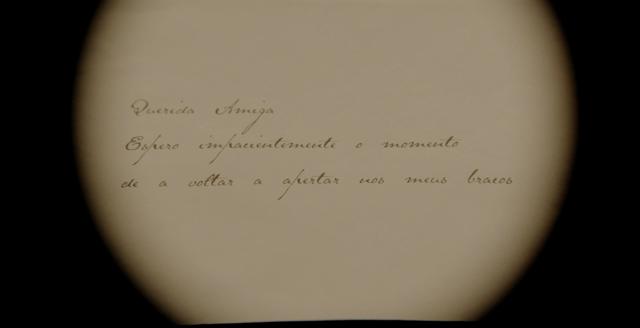 Querida Amiga
Espero impacientemente o momento
de a voltar a apertar nos meus braços